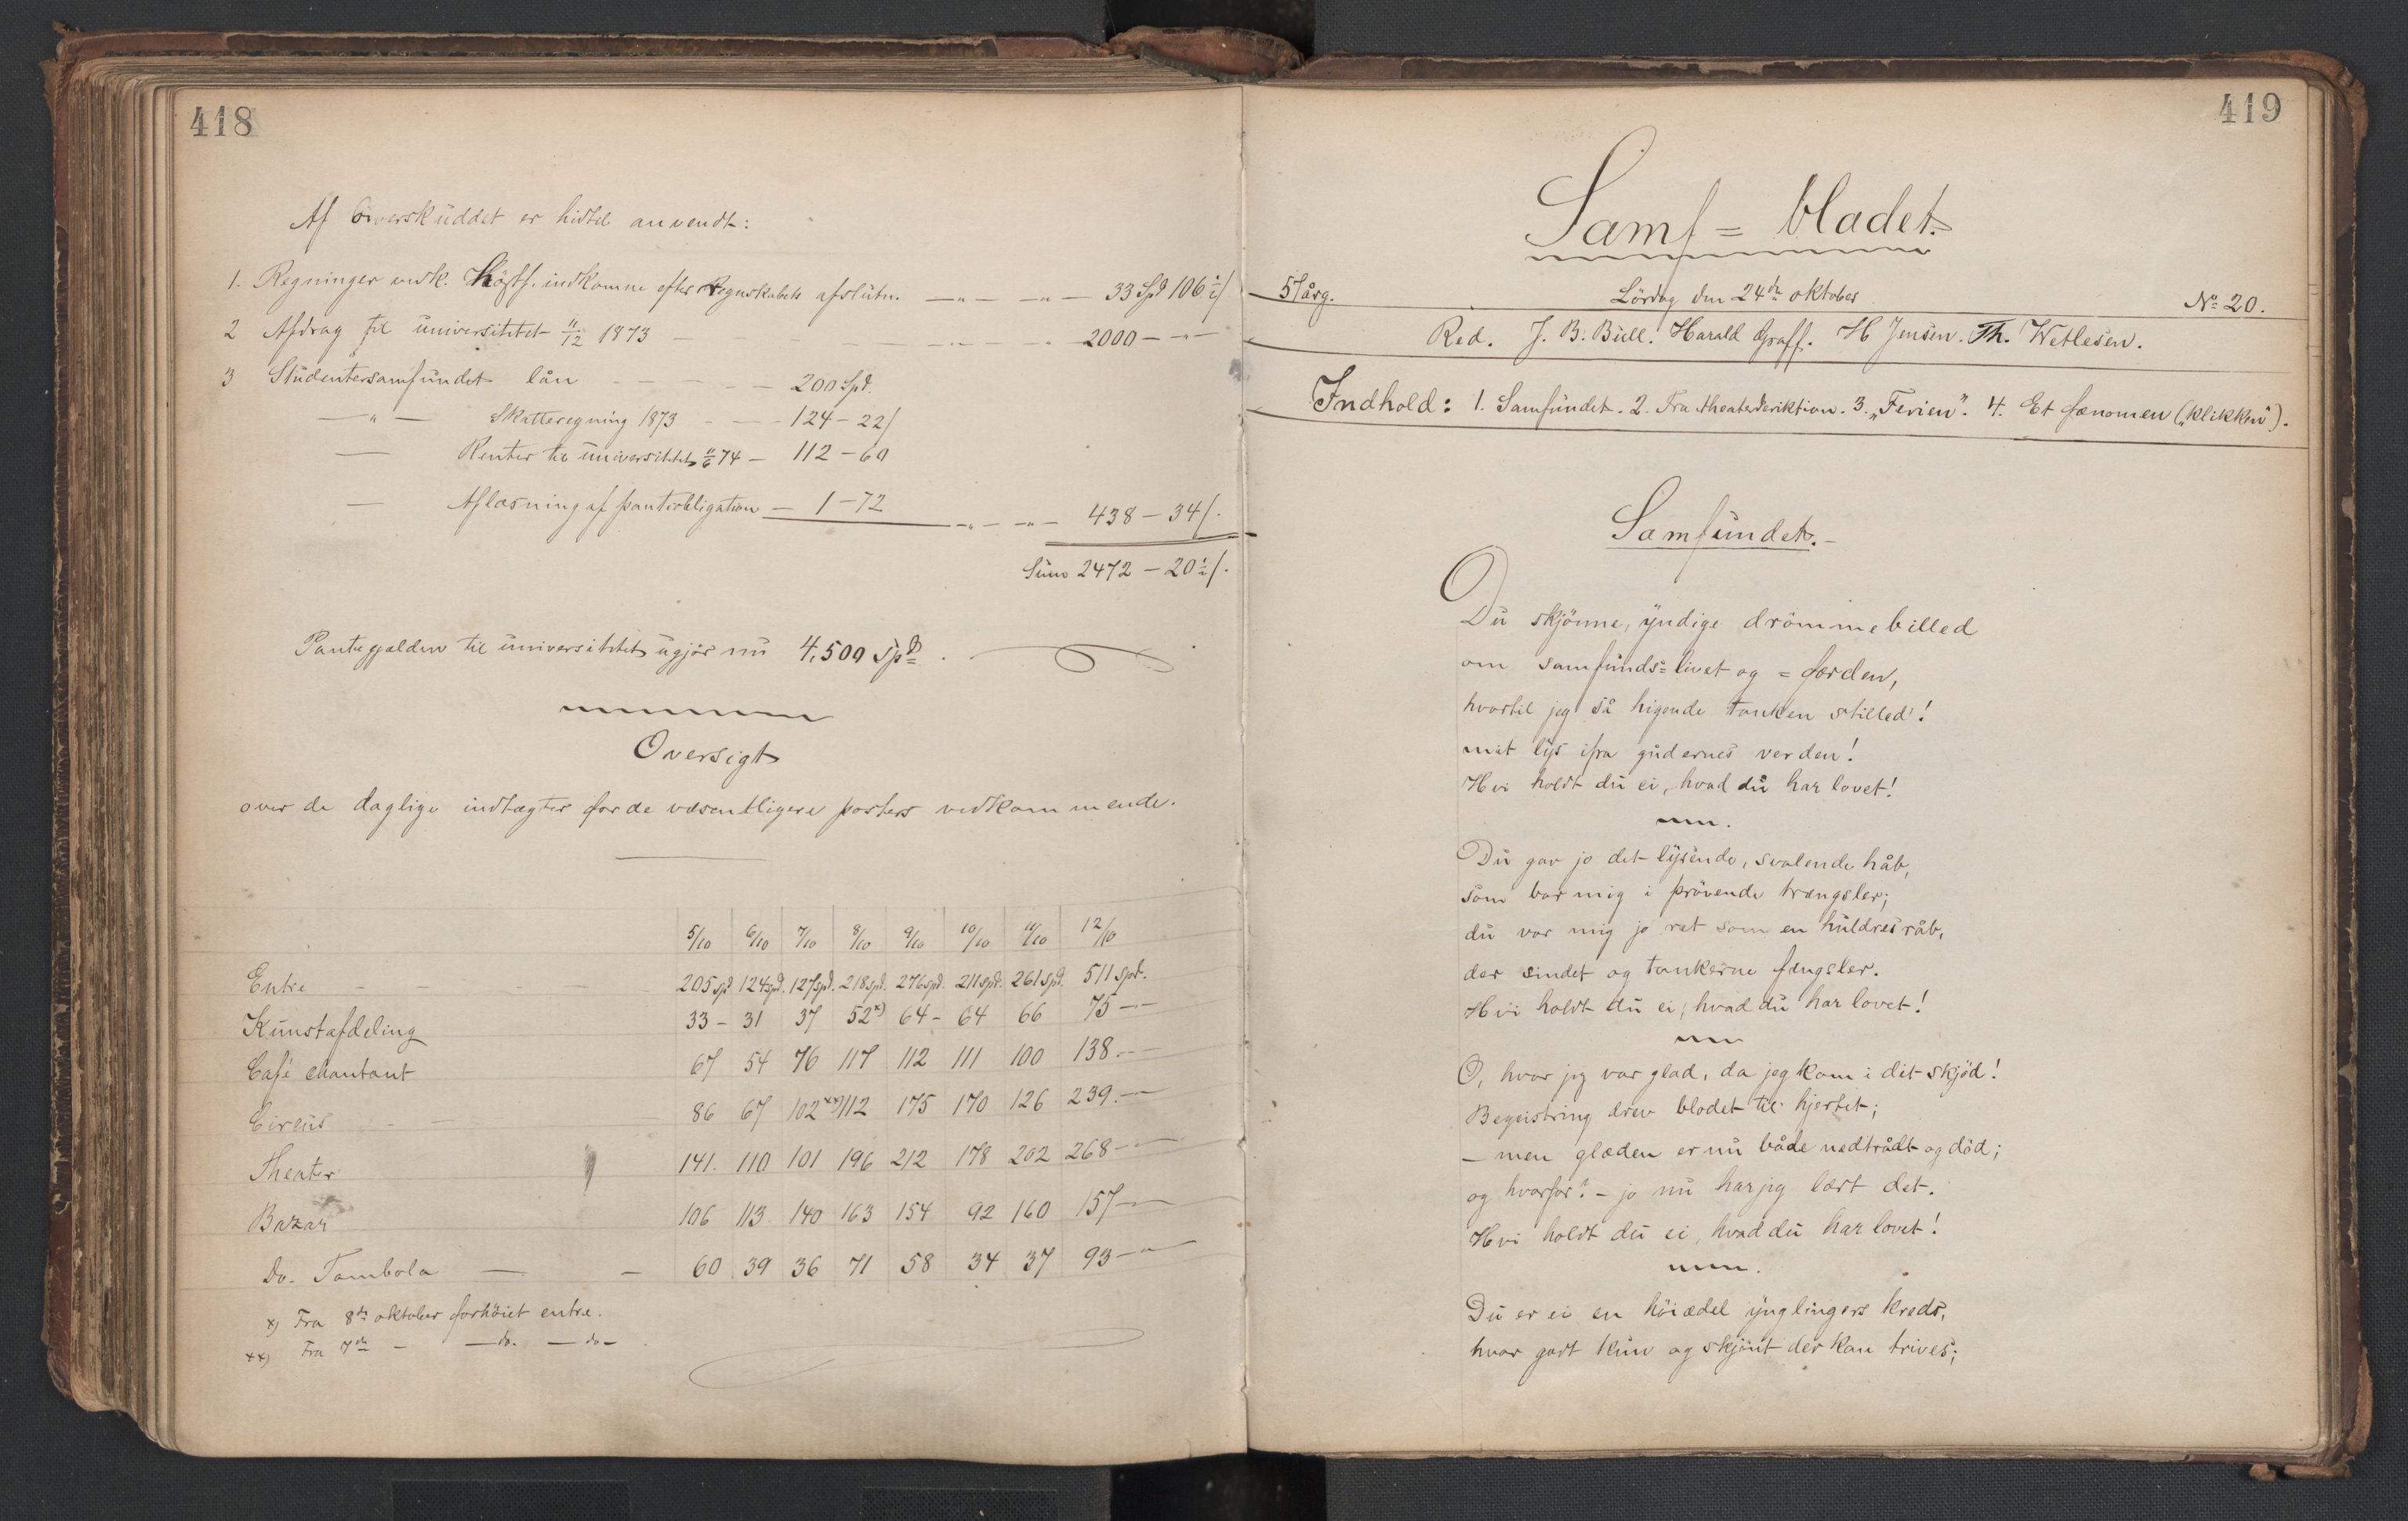 418
Af Overskuddet er hidtil anvendt:
1. Regninger vedk. Høstf. indkomne efter Regnskabets afslutn. —„— —„— 33 Spd 106½ s
2 Afdrag til universitetet 11/12 1873 — — — — 2000 — „ —
3 Studentersamfundet lån — — — — 200 Spd.
—„— Skatteregning 1873 - - - 124 - 22 s
— Renter til universitetet 11/6 74 — 112 - 60
— Aflæsning af pantobligation — 1 - 72 —„— —„— 438 - 34 s.
Sum 2472 - 20½ s.
Pantegjælden til universitetet ugjør nu 4,500 Spd.
Oversigt
over de daglige indtægter for de væsentligere posters vedkommende.
5/10 6/10 7/10 8/10 9/10 10/10 11/10 12/10
Entre - - - - 205 spd 124 spd. 127 spd. 218 spd. 276 spd. 211 spd. 261 spd. 511 spd.
Kunstafdeling 33 - 31 37 52 x) 64 - 64 66 75 -"-
Café chantant 67 54 76 117 112 111 100 138 -"-
Circus - - 86 67 102 xx) 112 175 170 126 239 -"-
Theater 141. 110 101 196 212 178 202 268 -"-
Bazar 106 113. 140 163 154 92 160 157 -"-
Do. Tombola — — 60 39 36 71 58 34 37 93 -"-
x) Fra 8de oktober forhöiet entre.
xx) Fra 7de - — do. — do —
419
Samf=bladet.
5 årg. Lördag den 24de oktober No 20.
Red. J. B. Bull. Harald Graff. H Jensen. Th. Wetlesen.
Indhold: 1. Samfundet. 2. Fra theaterderiktion. 3. „Ferien". 4. Et fænomen („klikken").
Samfundet.-
Du skjönne, yndige drömmebilled
om samfunds=livet og =færden,
hvortil jeg så higende tanken stilled'!
mit lys ifra gudernes verden!
Hvi holdt du ei, hvad du har lovet!
Du gav jo det lysende, svalende håb,
som bar mig i prövende trængsler;
du var mig jo ret som en huldres råb,
der sindet og tankerne fængsler.
Hvi holdt du ei, hvad du har lovet!
O, hvor jeg var glad, da jeg kom i dit skjöd!
Begeistring drev blodet til hjertet;
— men glæden er nu både nedtrådt og död;
og hvorfor? - jo nu har jeg lært det.
Hvi holdt du ei, hvad du har lovet!
Du er ei en höiædel ynglingers kreds,
hvor godt kun og skjönt der kan trives;